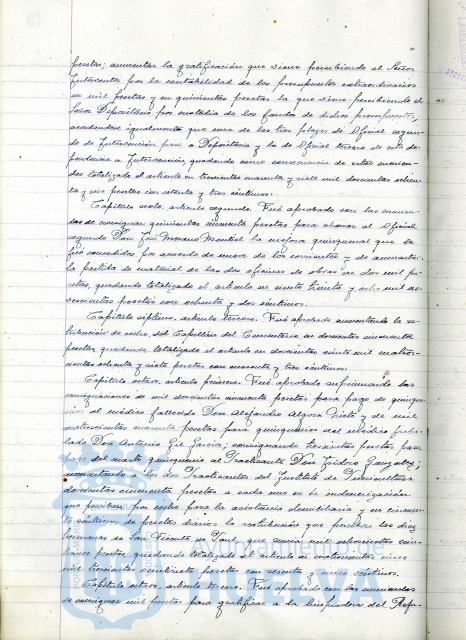 pesetas; aumentar la gratificación que viene percibiendo el Señor
Interventor por la contabilidad de los presupuestos extraordinarios
en mil pesetas y en quinientas pesetas la que viene percibiendo el
Señor Depositario por custodia de los fondos de dichos presupuestos,
acordándose igualmente que una de las tres plazas de Oficial segun-
do de Intervención pase a Depositaría y la de Oficial tercero de esta de-
pendencia a Intervención, quedando como consecuencia de estas enmien-
das totalizado el artículo en trescientas cuarenta y siete mil doscientas
y seis pesetas con setenta y tres céntimos.
Capítulo sexto, artículo segundo. Fué aprobado con las enmien-
das de consignar quinientas cincuenta pesetas para abonar al Oficial
segundo Don José Moreno Montiel la mejora quinquenal que le
fué concedida por acuerdo de nueve de los corrientes y de aumentar
la partida de material de las dos oficinas de obras en dos mil pe-
setas, quedando totalizado el artículo en ciento treinta y ocho mil
pesetas con ochenta y dos céntimos.
Capítulo séptimo, artículo tercero. Fué aprobado aumentando la re-
tribución de del Capellán del Cementerio en doscientas cincuenta
pesetas, quedando totalizado el artículo en doscientas siete mil cuatro-
cientas ochenta y siete pesetas con cuarenta y tres céntimos.
Capítulo octavo, artículo primero. Fué aprobado suprimiendo las
consignaciones de mil doscientas cuarenta pesetas para pago de quinque-
nios al médico fallecido Don Alejandro Algora Nieto y de mil
cuatrocientas pesetas para quinquenios del médico jubi-
lado Don Antonio Gil García; consignando trescientas pesetas para
pago del cuarto quinquenio al Practicante Don Isidoro González;
aumentando a los dos Practicantes del Instituto de Venereología
doscientas cincuenta pesetas a cada uno en la indemnización
que perciben por coches para la asistencia domiciliaria y en cincuen-
ta céntimos de pesetas diarios la retribución que perciben las diez
Hermanas de San Vicente de Paul, que suman mil ochocientas vein-
cinco pesetas, quedando totalizado el artículo en cuatrocientas once
mil trescientas veintisiete pesetas con sesenta y cinco céntimos.
Capítulo octavo, artículo tercero. Fué aprobado con las enmiendas
de consignar mil pesetas para gratificar a la Inspectora del Refu-
Ayuntamiento de
HUELVA